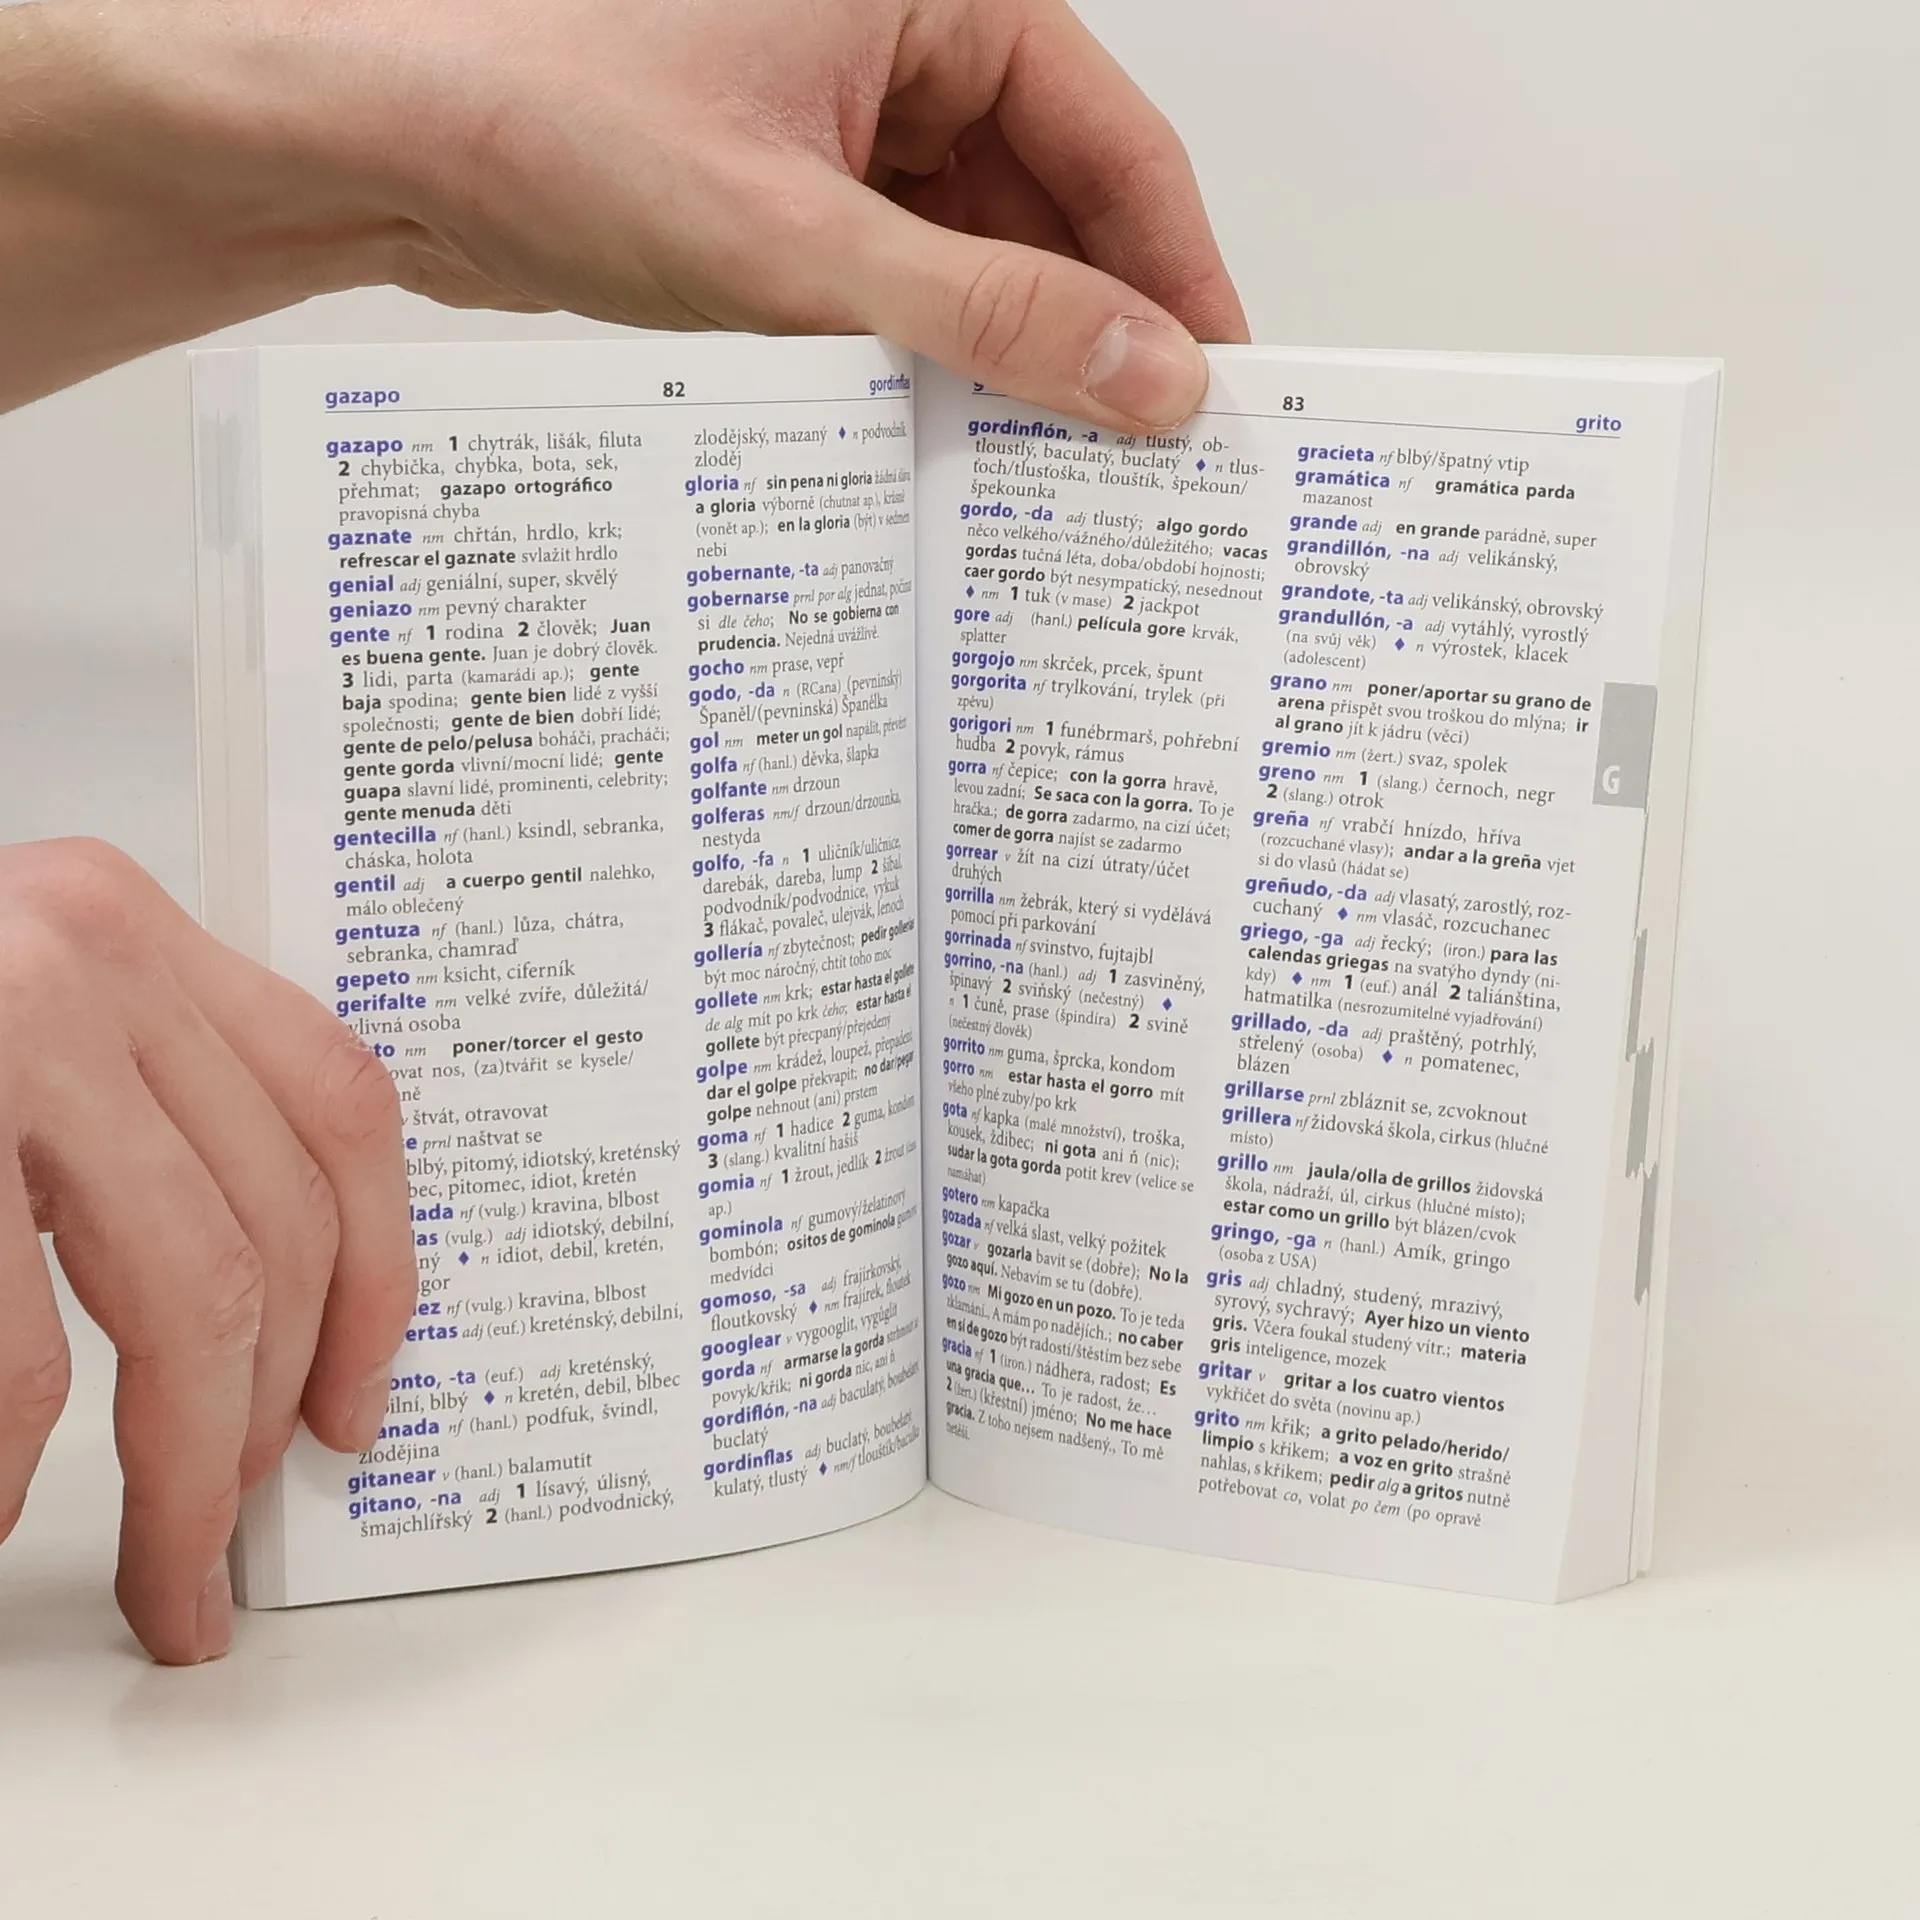 gazapo 82 gordinflas
gazapo nm 1 chytrák, lišák, filuta
2 chybička, chybka, bota, sek,
přehmat; gazapo ortográfico
pravopisná chyba
gaznate nm chřtán, hrdlo, krk;
refrescar el gaznate svlažit hrdlo
genial adj geniální, super, skvělý
geniazo nm pevný charakter
gente nf 1 rodina 2 člověk; Juan
es buena gente. Juan je dobrý člověk.
3 lidi, parta (kamarádi ap.); gente
baja spodina; gente bien lidé z vyšší
společnosti; gente de bien dobří lidé;
gente de pelo/pelusa boháči, pracháči;
gente gorda vlivní/mocní lidé; gente
guapa slavní lidé, prominenti, celebrity;
gente menuda děti
gentecilla nf (hanl.) ksindl, sebranka,
cháska, holota
gentil adj a cuerpo gentil nalehko,
málo oblečený
gentuza nf (hanl.) lůza, chátra,
sebranka, chamraď
gepeto nm ksicht, ciferník
gerifalte nm velké zvíře, důležitá/
vlivná osoba
to nm poner/torcer el gesto
ovat nos, (za)tvářit se kysele/
ně
v štvát, otravovat
e prnl naštvat se
blbý, pitomý, idiotský, kreténský
bec, pitomec, idiot, kretén
lada nf (vulg.) kravina, blbost
las (vulg.) adj idiotský, debilní,
ný ♦ n idiot, debil, kretén,
gor
ez nf (vulg.) kravina, blbost
ertas adj (euf.) kreténský, debilní,
onto, -ta (euf.) adj kreténský,
ilní, blbý ♦ n kretén, debil, blbec
anada nf (hanl.) podfuk, švindl,
zlodějina
gitanear v (hanl.) balamutit
gitano, -na adj 1 lísavý, úlisný,
šmajchlířský 2 (hanl.) podvodnický,
zlodějský, mazaný ♦ n podvodník,
zloděj
gloria nf sin pena ni gloria žádná sláva
a gloria výborně (chutnat ap.), krásně
(vonět ap.); en la gloria (být) v sedmém
nebi
gobernante, -ta adj panovačný
gobernarse prnl por alg jednat, počínat
si dle čeho; No se gobierna con
prudencia. Nejedná uvážlivě.
gocho nm prase, vepř
godo, -da n (RCana) (pevninský)
Španěl/(pevninská) Španělka
gol nm meter un gol napálit, převézt
golfa nf (hanl.) děvka, šlapka
golfante nm drzoun
golferas nm/f drzoun/drzounka,
nestyda
golfo, -fa n 1 uličník/uličnice,
darebák, dareba, lump 2 šibal,
podvodník/podvodnice, vykuk
3 flákač, povaleč, ulejvák, lenoch
gollería nf zbytečnost; pedir gollerías
být moc náročný, chtít toho moc
gollete nm krk; estar hasta el gollete
de alg mít po krk čeho; estar hasta el
gollete být přecpaný/přejedený
golpe nm krádež, loupež, přepadení;
dar el golpe překvapit; no dar/pegar
golpe nehnout (ani) prstem
goma nf 1 hadice 2 guma, kondom
3 (slang.) kvalitní hašiš
gomia nf 1 žrout, jedlík 2 žrout
ap.)
gominola nf gumový/želatinový
bombón; ositos de gominola
medvídci
gomoso, -sa adj frajírkovský,
floutkovský ♦ nm frajírek, floutek
googlear v vygooglit, vygúglit
gorda nf armarse la gorda
povyk/křik; ni gorda nic, ani ň
gordiflón, -na adj baculatý, boubelatý,
buclatý
gordinflas adj buclatý, boubelatý,
kulatý, tlustý ♦ nm/f tlouštík/baculka
83 grito
gordinflón, -a adj tlustý, ob-
tloustlý, baculatý, buclatý ♦ n tlus-
ťoch/tlusťoška, tlouštík, špekoun/
špekounka
gordo, -da adj tlustý; algo gordo
něco velkého/vážného/důležitého; vacas
gordas tučná léta, doba/období hojnosti;
caer gordo být nesympatický, nesednout
♦ nm 1 tuk (v mase) 2 jackpot
gore adj (hanl.) película gore krvák,
splatter
gorgojo nm skrček, prcek, špunt
gorgorita nf trylkování, trylek (při
zpěvu)
gorigori nm 1 funébrmarš, pohřební
hudba 2 povyk, rámus
gorra nf čepice; con la gorra hravě,
levou zadní; Se saca con la gorra. To je
hračka.; de gorra zadarmo, na cizí účet;
comer de gorra najíst se zadarmo
gorrear v žít na cizí útraty/účet
druhých
gorrilla nm žebrák, který si vydělává
pomocí při parkování
gorrinada nf svinstvo, fujtajbl
gorrino, -na (hanl.) adj 1 zasviněný,
špinavý 2 sviňský (nečestný) ♦
n 1 čuně, prase (špindíra) 2 svině
(nečestný člověk)
gorrito nm guma, šprcka, kondom
gorro nm estar hasta el gorro mít
všeho plné zuby/po krk
gota nf kapka (malé množství), troška,
kousek, ždibec; ni gota ani ň (nic);
sudar la gota gorda potit krev (velice se
namáhat)
gotero nm kapačka
gozada nf velká slast, velký požitek
gozar v gozarla bavit se (dobře); No la
gozo aquí. Nebavím se tu (dobře).
gozo nm Mi gozo en un pozo. To je teda
zklamání., A mám po nadějích.; no caber
en sí de gozo být radostí/štěstím bez sebe
gracia nf 1 (iron.) nádhera, radost; Es
una gracia que... To je radost, že…
2 (žert.) (křestní) jméno; No me hace
gracia. Z toho nejsem nadšený., To mě
netěší.
gracieta nf blbý/špatný vtip
gramática nf gramática parda
mazanost
grande adj en grande parádně, super
grandillón, -na adj velikánský,
obrovský
grandote, -ta adj velikánský, obrovský
grandullón, -a adj vytáhlý, vyrostlý
(na svůj věk) ♦ n výrostek, klacek
(adolescent)
grano nm poner/aportar su grano de
arena přispět svou troškou do mlýna; ir
al grano jít k jádru (věci)
gremio nm (žert.) svaz, spolek
greno nm 1 (slang.) černoch, negr
2 (slang.) otrok
greña nf vrabčí hnízdo, hříva
(rozcuchané vlasy); andar a la greña vjet
si do vlasů (hádat se)
greñudo, -da adj vlasatý, zarostlý, roz-
cuchaný ♦ nm vlasáč, rozcuchanec
griego, -ga adj řecký; (iron.) para las
calendas griegas na svatýho dyndy (ni-
kdy) ♦ nm 1 (euf.) anál 2 taliánština,
hatmatilka (nesrozumitelné vyjadřování)
grillado, -da adj praštěný, potrhlý,
střelený (osoba) ♦ n pomatenec,
blázen
grillarse prnl zbláznit se, zcvoknout
grillera nf židovská škola, cirkus (hlučné
místo)
grillo nm jaula/olla de grillos židovská
škola, nádraží, úl, cirkus (hlučné místo);
estar como un grillo být blázen/cvok
gringo, -ga n (hanl.) Amík, gringo
(osoba z USA)
gris adj chladný, studený, mrazivý,
syrový, sychravý; Ayer hizo un viento
gris. Včera foukal studený vítr.; materia
gris inteligence, mozek
gritar v gritar a los cuatro vientos
vykřičet do světa (novinu ap.)
grito nm křik; a grito pelado/herido/
limpio s křikem; a voz en grito strašně
nahlas, s křikem; pedir alg a gritos nutně
potřebovat co, volat po čem (po opravě
G